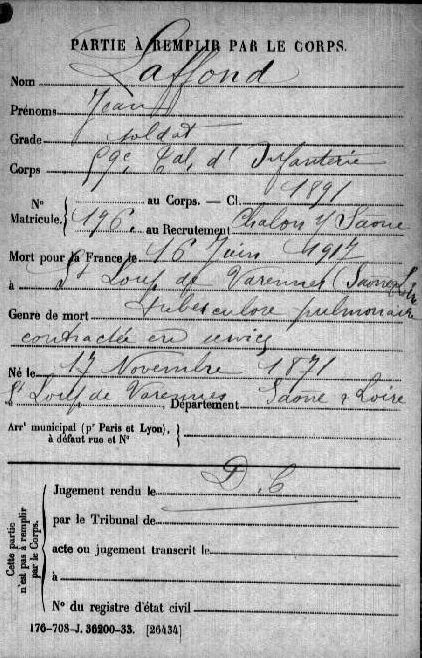 PARTIE À REMPLIR PAR LE CORPS.
Nom Laffond
Prénoms Jean
Grade soldat
Corps 59e Bat. d' Infanterie
N° au Corps. — Cl. 1891
Matricule. 196. au Recrutement Chalon s/ Saone
Mort pour la France le 16 Juin 1917
à St Loup de Varennes (Saone & Loire
Genre de mort tuberculose pulmonaire
contractée en service
Né le 17 Novembre 1871
St Loup de Varennes Département Saone & Loire
Arrt municipal (pr Paris et Lyon),
à défaut rue et N°
D. C
Jugement rendu le
par le Tribunal de
acte ou jugement transcrit le
à
N° du registre d'état civil
Cette partie
n'est pas à remplir
par le Corps.
176-708-J. 36200-33. [26434]